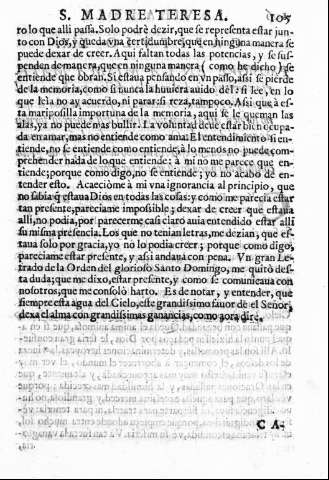 S. MADRE TERESA. 105
ro lo que alli passa. Solo podrè dezir, que se representa estar jun-
to con Dios, y queda vna certidumbre, que en ninguna manera se
puede dexar de creer. Aqui faltan todas las potencias, y se sus-
penden de manera, que en ninguna manera ( como he dicho ) se
entiende que obran. Si estaua pensando en vn passo, assi se pierde
de la memoria, como si nunca la huuiera auido dèl: si lee, en lo
que leìa no ay acuerdo, ni parar: si reza, tampoco. Assi que à es-
ta mariposilla importuna de la memoria, aqui se le queman las
alas, ya no puede mas bullir. La voluntad deue estar bien ocupa-
da en amar, mas no entiende como ama. El entendimiento si en-
tiende, no se entiende como entiende; à lo menos no puede com-
prehender nada de lo que entiende: à mi no me parece que en-
tiende; porque como digo, no se entiende; yo no acabo de en-
tender esto. Acaeciòme à mi vna ignorancia al principio, que
no sabia q̃ estaua Dios en todas las cosas: y como me parecia estar
tan presente, pareciame impossible; dexar de creer que estaua
alli, no podia, por parecerme casi claro auia entendido estar alli
su misma presencia. Los que no tenian letras, me dezian, que es-
taua solo por gracia, yo no lo podia creer; porque como digo,
pareciame estar presente, y assi andaua con pena. Vn gran Le-
trado de la Orden del glorioso Santo Domingo, me quitò des-
ta duda; que me dixo, estar presente, y como se comunicaua con
nosotros, que me consolò harto. Es de notar, y entender, que
siempre esta agua del Cielo, este grandissimo fauor de el Señor,
dexa el alma con grandissimas ganancias, como aora dirè.
CA-